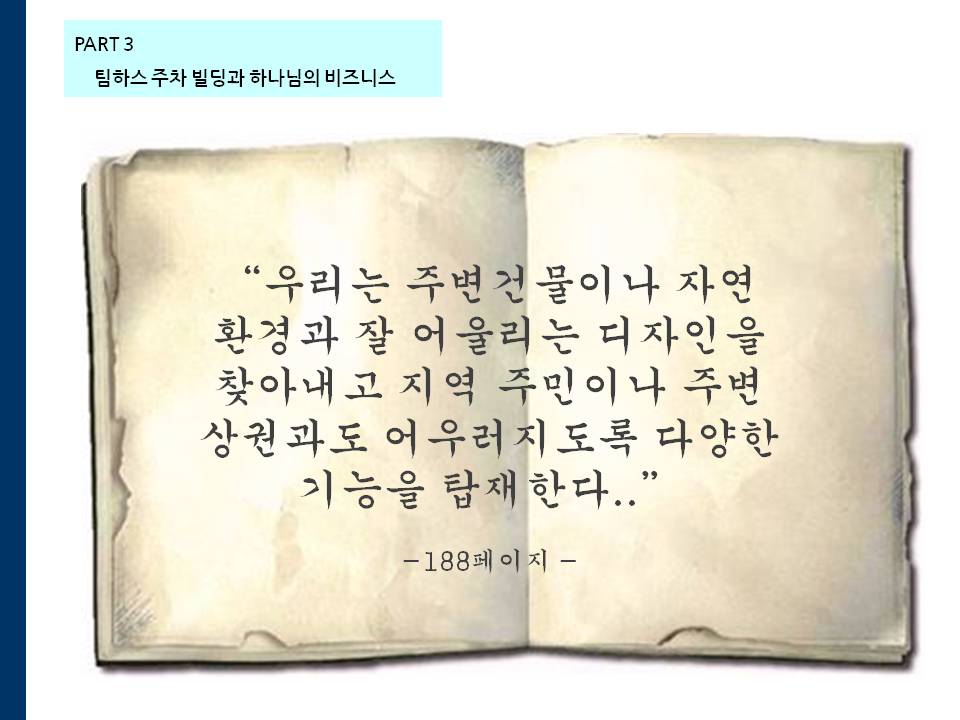 PART 3
팀하스 주차 빌딩과 하나님의 비즈니스
“우리는 주변건물이나 자연
환경과 잘 어울리는 디자인을
찾아내고 지역 주민이나 주변
상권과도 어우러지도록 다양한
기능을 탑재한다..”
-188페이지 -